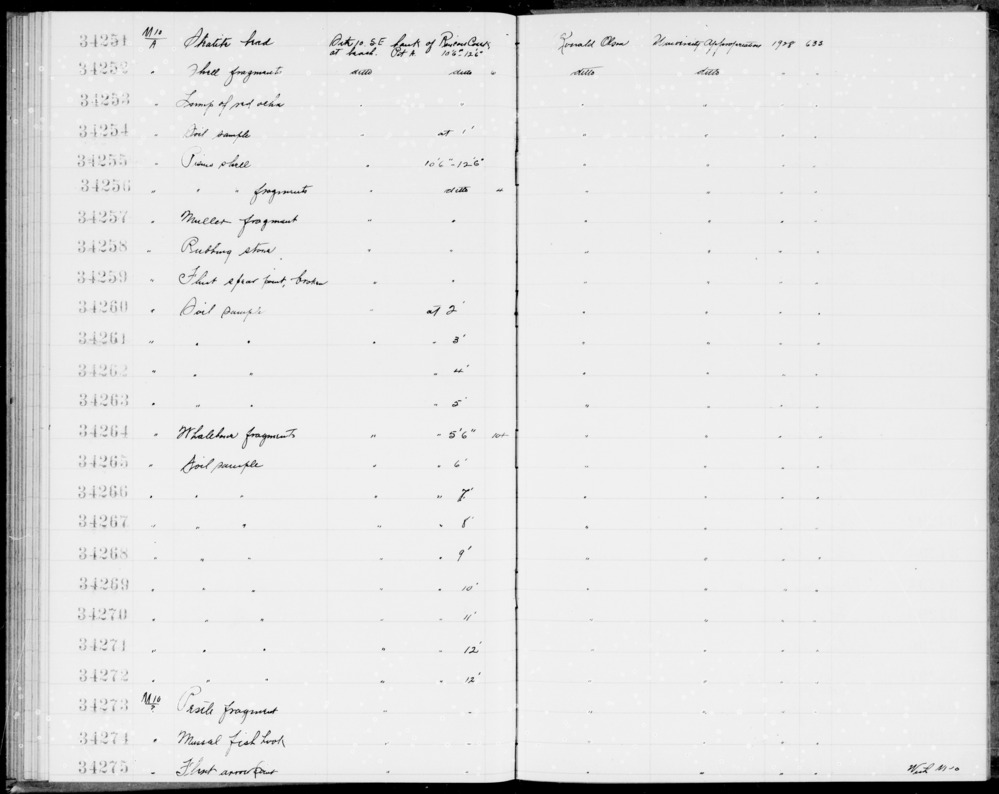 34251 M10/A Steatite bead Site 10. S.E. bank of Creek at beach. Pit A 10'6"-12'6" Ronald Olson University Appropriation 1928 633
34252 " Shell fragment ditto ditto " ditto ditto " "
34253 " Lump of red ochre " " " " " "
34254 " Soil sample at 1' " " " "
34255 " Pismo shell " 10'6"-12'6" " " " "
34256 " " " fragments " ditto " " " " "
34257 " Muller fragment " " " " " "
34258 " Rubbing stone " " " " " "
34259 " Flint spear point, broken " " " " " "
34260 " Soil sample " at 2' " " " "
34261 " " " " " 3' " " " "
34262 " " " " 4' " " " "
34263 " " " " 5' " " " "
34264 " Whalebone fragments " " 5'6" " " " "
34265 " Soil sample " " 6' " " " "
34266 " " " " " 7' " " " "
34267 " " " " " 8' " " " "
34268 " " " " " 9' " " " "
34269 " " " " " 10' " " " "
34270 " " " " " 11' " " " "
34271 " " " " " 12' " " " "
34272 " " " " " 12' " " " "
34273 Pestle fragment " " " " " "
34274 " Mussel fish hook " " " " " "
34275 " Flint arrow point " " " " " " M-10